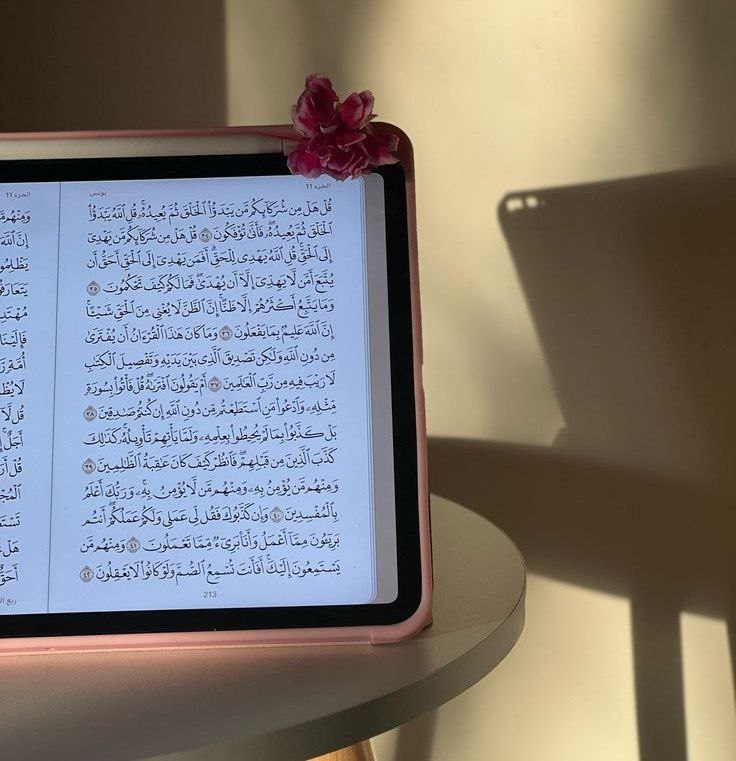 الجزء ١١
يونس
قُلْ هَلْ مِن شُرَكَآئِكُم مَّن يَبْدَؤُا۟ ٱلْخَلْقَ ثُمَّ يُعِيدُهُۥ ۚ قُلِ ٱللَّهُ يَبْدَؤُا۟
ٱلْخَلْقَ ثُمَّ يُعِيدُهُۥ ۖ فَأَنَّىٰ تُؤْفَكُونَ ٣٤ قُلْ هَلْ مِن شُرَكَآئِكُم مَّن يَهْدِىٓ
إِلَى ٱلْحَقِّ ۚ قُلِ ٱللَّهُ يَهْدِى لِلْحَقِّ ۗ أَفَمَن يَهْدِىٓ إِلَى ٱلْحَقِّ أَحَقُّ أَن
يُتَّبَعَ أَمَّن لَّا يَهِدِّىٓ إِلَّآ أَن يُهْدَىٰ ۖ فَمَا لَكُمْ كَيْفَ تَحْكُمُونَ ٣٥
وَمَا يَتَّبِعُ أَكْثَرُهُمْ إِلَّا ظَنًّا ۚ إِنَّ ٱلظَّنَّ لَا يُغْنِى مِنَ ٱلْحَقِّ شَيْـًٔا ۚ
إِنَّ ٱللَّهَ عَلِيمٌۢ بِمَا يَفْعَلُونَ ٣٦ وَمَا كَانَ هَـٰذَا ٱلْقُرْءَانُ أَن يُفْتَرَىٰ
مِن دُونِ ٱللَّهِ وَلَـٰكِن تَصْدِيقَ ٱلَّذِى بَيْنَ يَدَيْهِ وَتَفْصِيلَ ٱلْكِتَـٰبِ
لَا رَيْبَ فِيهِ مِن رَّبِّ ٱلْعَـٰلَمِينَ ٣٧ أَمْ يَقُولُونَ ٱفْتَرَىٰهُ ۖ قُلْ فَأْتُوا۟ بِسُورَةٍ
مِّثْلِهِۦ وَٱدْعُوا۟ مَنِ ٱسْتَطَعْتُم مِّن دُونِ ٱللَّهِ إِن كُنتُمْ صَـٰدِقِينَ ٣٨
بَلْ كَذَّبُوا۟ بِمَا لَمْ يُحِيطُوا۟ بِعِلْمِهِۦ وَلَمَّا يَأْتِهِمْ تَأْوِيلُهُۥ ۚ كَذَٰلِكَ
كَذَّبَ ٱلَّذِينَ مِن قَبْلِهِمْ ۖ فَٱنظُرْ كَيْفَ كَانَ عَـٰقِبَةُ ٱلظَّـٰلِمِينَ ٣٩
وَمِنْهُم مَّن يُؤْمِنُ بِهِۦ وَمِنْهُم مَّن لَّا يُؤْمِنُ بِهِۦ ۚ وَرَبُّكَ أَعْلَمُ
بِٱلْمُفْسِدِينَ ٤٠ وَإِن كَذَّبُوكَ فَقُل لِّى عَمَلِى وَلَكُمْ عَمَلُكُمْ ۖ أَنتُم
بَرِيٓـُٔونَ مِمَّآ أَعْمَلُ وَأَنَا۠ بَرِىٓءٌ مِّمَّا تَعْمَلُونَ ٤١ وَمِنْهُم مَّن
يَسْتَمِعُونَ إِلَيْكَ ۚ أَفَأَنتَ تُسْمِعُ ٱلصُّمَّ وَلَوْ كَانُوا۟ لَا يَعْقِلُونَ ٤٢
213
الجزء ١١
وَمِنْهُم
إِنَّ ٱللَّهَ
يَظْلِمُو
يَتَعَارَفُ
مُهْتَدِ
فَإِلَيْنَا
أُمَّةٍ رَّ
لَا يُظْ
قُل لَّآ
أَجَلٌ
قُلْ أَرَ
ٱلْمُجْ
تَسْتَ
هَلْ
أَحَقٌّ
ربع ال